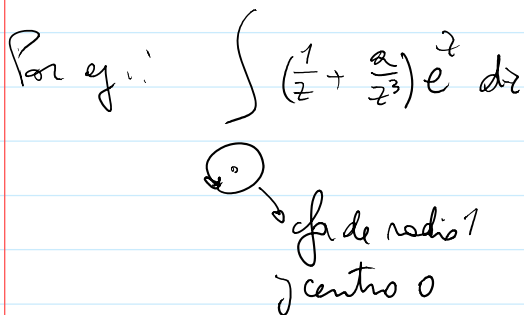 Por ej.: ∫ (1/z + a/z³) e^z dz
cfa de radio 1
y centro 0